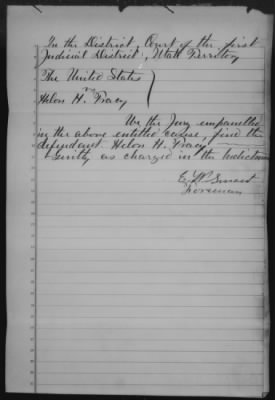 In the District Court of the first
Judicial District, Utah Territory
The United States
vs
Helon H. Tracy
We the Jury empanelled
in the above entitled cause, find the
defendant Helon H. Tracy
Guilty as charged in the Indictment
Foreman